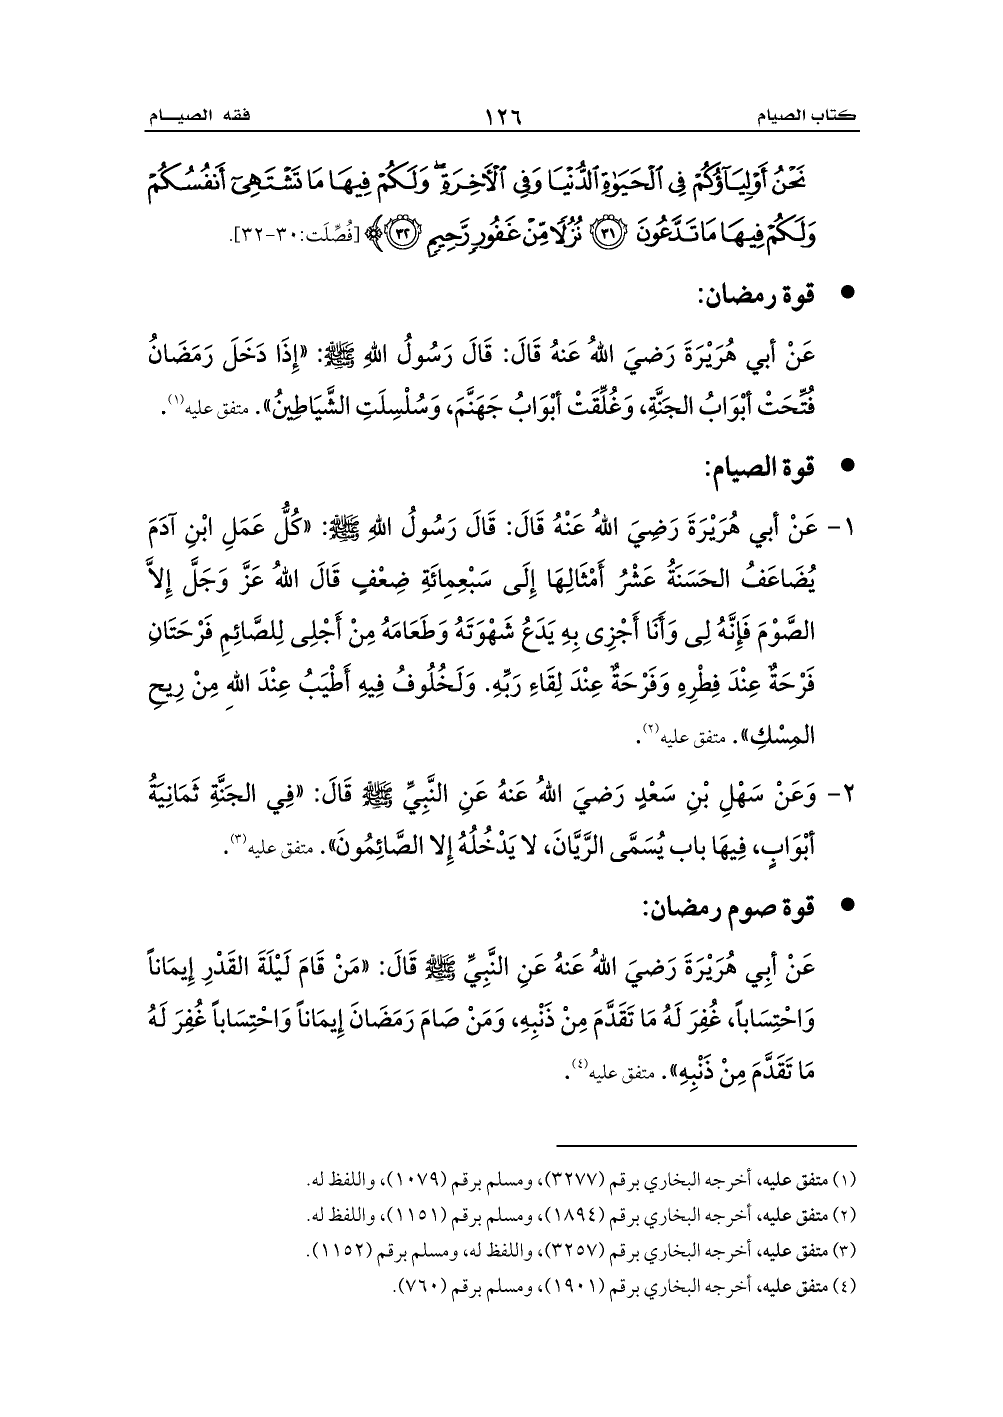 كتاب الصيام ١٢٦ فقه الصيـــام
نَحْنُ أَوْلِيَآؤُكُمْ فِي ٱلْحَيَوٰةِ ٱلدُّنْيَا وَفِي ٱلْأٓخِرَةِۖ وَلَكُمْ فِيهَا مَا تَشْتَهِيٓ أَنفُسُكُمْ
وَلَكُمْ فِيهَا مَا تَدَّعُونَ ﴿٣١﴾ نُزُلًا مِّنْ غَفُورٍ رَّحِيمٍ ﴿٣٢﴾﴾ [فُصِّلَت:٣٠-٣٢].
● قوة رمضان:
عَنْ أبي هُرَيْرَةَ رَضيَ اللهُ عَنهُ قَالَ: قَالَ رَسُولُ اللهِ ﷺ: «إِذَا دَخَلَ رَمَضَانُ
فُتِّحَتْ أبْوَابُ الجَنَّةِ، وَغُلِّقَتْ أبْوَابُ جَهَنَّمَ، وَسُلْسِلَتِ الشَّيَاطِينُ». متفق عليه(١).
● قوة الصيام:
١- عَنْ أبي هُرَيْرَةَ رَضِيَ اللهُ عَنْهُ قَالَ: قَالَ رَسُولُ اللهِ ﷺ: «كُلُّ عَمَلِ ابْنِ آدَمَ
يُضَاعَفُ الحَسَنَةُ عَشْرُ أَمْثَالِهَا إِلَى سَبْعِمِائَةِ ضِعْفٍ قَالَ اللهُ عَزَّ وَجَلَّ إِلاَّ
الصَّوْمَ فَإِنَّهُ لِى وَأَنَا أَجْزِى بِهِ يَدَعُ شَهْوَتَهُ وَطَعَامَهُ مِنْ أَجْلِى لِلصَّائِمِ فَرْحَتَانِ
فَرْحَةٌ عِنْدَ فِطْرِهِ وَفَرْحَةٌ عِنْدَ لِقَاءِ رَبِّهِ. وَلَخُلُوفُ فِيهِ أَطْيَبُ عِنْدَ اللهِ مِنْ رِيحِ
المِسْكِ». متفق عليه(٢).
٢- وَعَنْ سَهْلِ بْنِ سَعْدٍ رَضيَ اللهُ عَنهُ عَنِ النَّبِيِّ ﷺ قَالَ: «فِي الجَنَّةِ ثَمَانِيَةُ
أبْوَابٍ، فِيهَا باب يُسَمَّى الرَّيَّانَ، لا يَدْخُلُهُ إلا الصَّائِمُونَ». متفق عليه(٣).
● قوة صوم رمضان:
عَنْ أبِي هُرَيْرَةَ رَضيَ اللهُ عَنهُ عَنِ النَّبِيِّ ﷺ قَالَ: «مَنْ قَامَ لَيْلَةَ القَدْرِ إيمَاناً
وَاحْتِسَاباً، غُفِرَ لَهُ مَا تَقَدَّمَ مِنْ ذَنْبِهِ، وَمَنْ صَامَ رَمَضَانَ إيمَاناً وَاحْتِسَاباً غُفِرَ لَهُ
مَا تَقَدَّمَ مِنْ ذَنْبِهِ». متفق عليه(٤).
(١) متفق عليه، أخرجه البخاري برقم (٣٢٧٧)، ومسلم برقم (١٠٧٩)، واللفظ له.
(٢) متفق عليه، أخرجه البخاري برقم (١٨٩٤)، ومسلم برقم (١١٥١)، واللفظ له.
(٣) متفق عليه، أخرجه البخاري برقم (٣٢٥٧)، واللفظ له، ومسلم برقم (١١٥٢).
(٤) متفق عليه، أخرجه البخاري برقم (١٩٠١)، ومسلم برقم (٧٦٠).